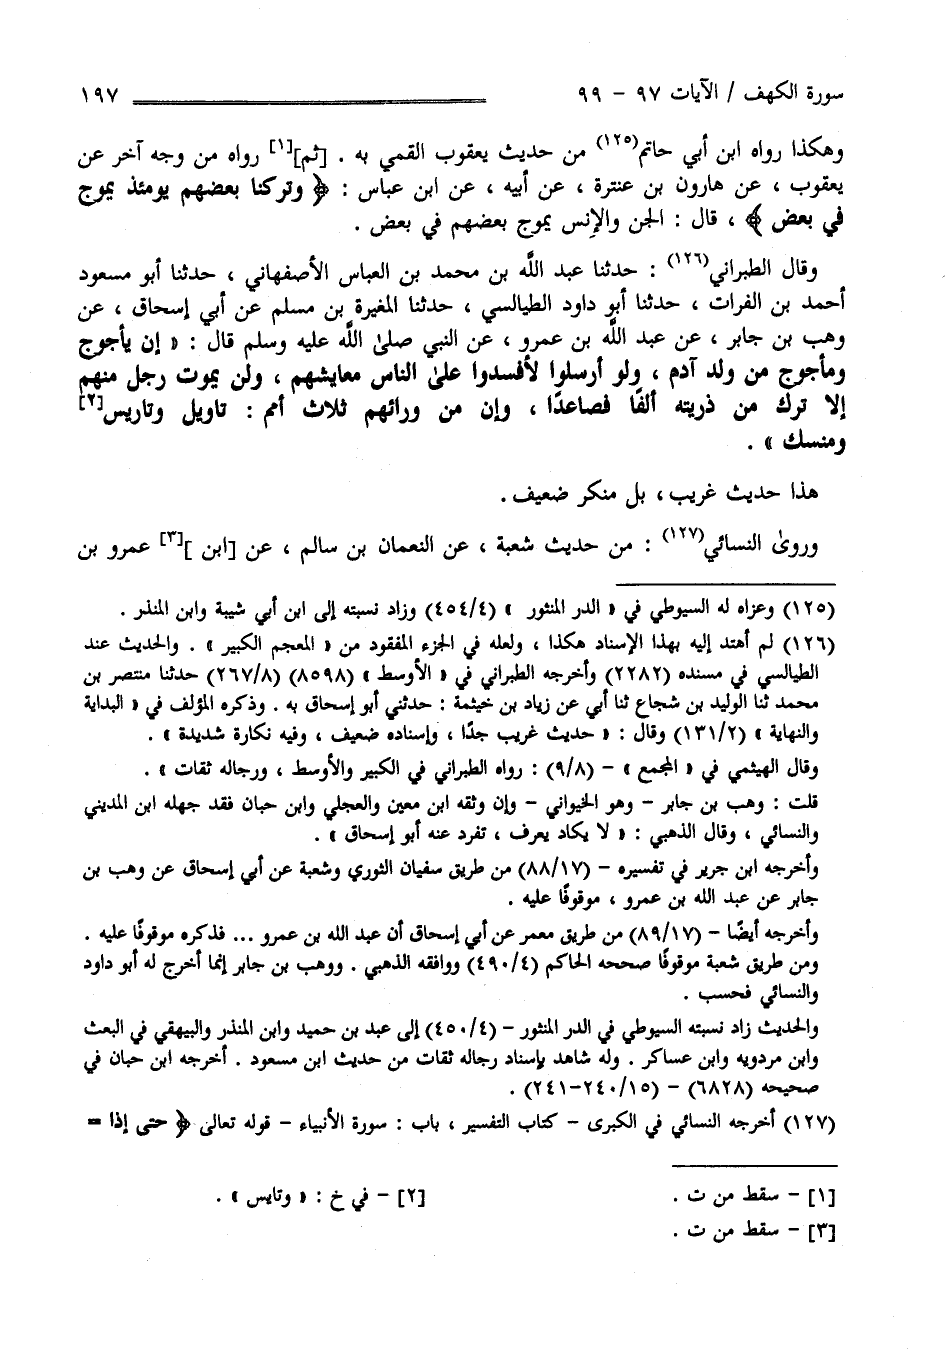 سورة الكهف / الآيات ٩٧ - ٩٩ ١٩٧
وهكذا رواه ابن أبي حاتم(١٢٥) من حديث يعقوب القمي به . [ثم][١] رواه من وجه آخر عن
يعقوب ، عن هارون بن عنترة ، عن أبيه ، عن ابن عباس : ﴿ وتركنا بعضهم يومئذ يموج
في بعض ﴾ ، قال : الجن والإنس يموج بعضهم في بعض .
وقال الطبراني(١٢٦) : حدثنا عبد اللَّه بن محمد بن العباس الأصفهاني ، حدثنا أبو مسعود
أحمد بن الفرات ، حدثنا أبو داود الطيالسي ، حدثنا المغيرة بن مسلم عن أبي إسحاق ، عن
وهب بن جابر ، عن عبد اللَّه بن عمرو ، عن النبي صلىٰ اللَّه عليه وسلم قال : « إن يأجوج
ومأجوج من ولد آدم ، ولو أرسلوا لأفسدوا علىٰ الناس معايشهم ، ولن يموت رجل منهم
إلا ترك من ذريته ألفًا فصاعدًا ، وإن من ورائهم ثلاث أمم : تاويل وتاريس[٢]
ومنسك » .
هذا حديث غريب ، بل منكر ضعيف .
وروىٰ النسائي(١٢٧) : من حديث شعبة ، عن النعمان بن سالم ، عن [ابن ][٣] عمرو بن
(١٢٥) وعزاه له السيوطي في « الدر المنثور » (٤/٤٥٤) وزاد نسبته إلى ابن أبي شيبة وابن المنذر .
(١٢٦) لم أهتد إليه بهذا الإسناد هكذا ، ولعله في الجزء المفقود من « المعجم الكبير » . والحديث عند
الطيالسي في مسنده (٢٢٨٢) وأخرجه الطبراني في « الأوسط » (٨٥٩٨) (٢٦٧/٨) حدثنا منتصر بن
محمد ثنا الوليد بن شجاع ثنا أبي عن زياد بن خيثمة : حدثني أبو إسحاق به . وذكره المؤلف في « البداية
والنهاية » (١٣١/٢) وقال : « حديث غريب جدًا ، وإسناده ضعيف ، وفيه نكارة شديدة » .
وقال الهيثمي في « المجمع » - (٩/٨) : رواه الطبراني في الكبير والأوسط ، ورجاله ثقات » .
قلت : وهب بن جابر - وهو الخيواني - وإن وثقه ابن معين والعجلي وابن حبان فقد جهله ابن المديني
والنسائي ، وقال الذهبي : « لا يكاد يعرف ، تفرد عنه أبو إسحاق » .
وأخرجه ابن جرير في تفسيره - (٨٨/١٧) من طريق سفيان الثوري وشعبة عن أبي إسحاق عن وهب بن
جابر عن عبد الله بن عمرو ، موقوفًا عليه .
وأخرجه أيضًا - (٨٩/١٧) من طريق معمر عن أبي إسحاق أن عبد الله بن عمرو ... فذكره موقوفًا عليه .
ومن طريق شعبة موقوفًا صححه الحاكم (٤٩٠/٤) ووافقه الذهبي . ووهب بن جابر إنما أخرج له أبو داود
والنسائي فحسب .
والحديث زاد نسبته السيوطي في الدر المنثور - (٤٥٠/٤) إلى عبد بن حميد وابن المنذر والبيهقي في البعث
وابن مردويه وابن عساكر . وله شاهد بإسناد رجاله ثقات من حديث ابن مسعود . أخرجه ابن حبان في
صحيحه (٦٨٢٨) - (٢٤٠/١٥-٢٤١) .
(١٢٧) أخرجه النسائي في الكبرى - كتاب التفسير ، باب : سورة الأنبياء - قوله تعالى ﴿ حتى إذا =
[١] - سقط من ت . [٢] - في خ : « وتايس » .
[٣] - سقط من ت .